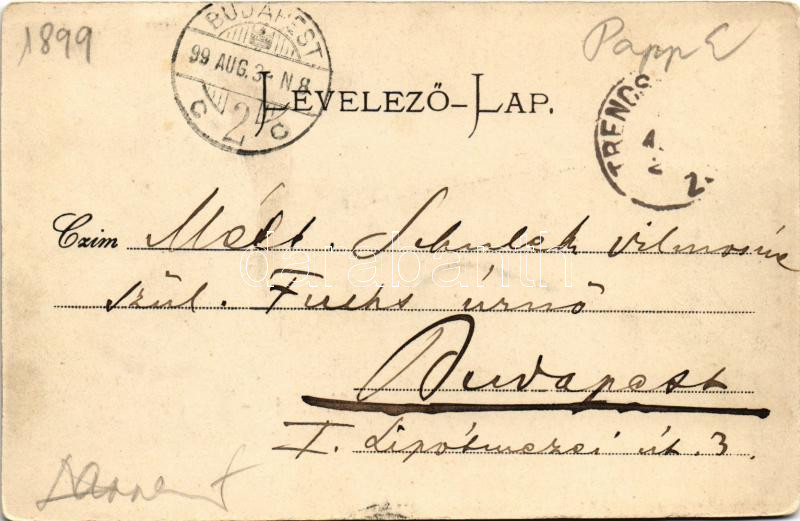 1899
BUDAPEST
99 AUG. 3. N. 8
C 2 C
Papp E
LEVELEZŐ-LAP.
TRENCS
Czim Mélt. Schulek Vilmosné
szül. Fuchs úrnő
darabanth
Budapest
I. Lipótmezei út. 3.